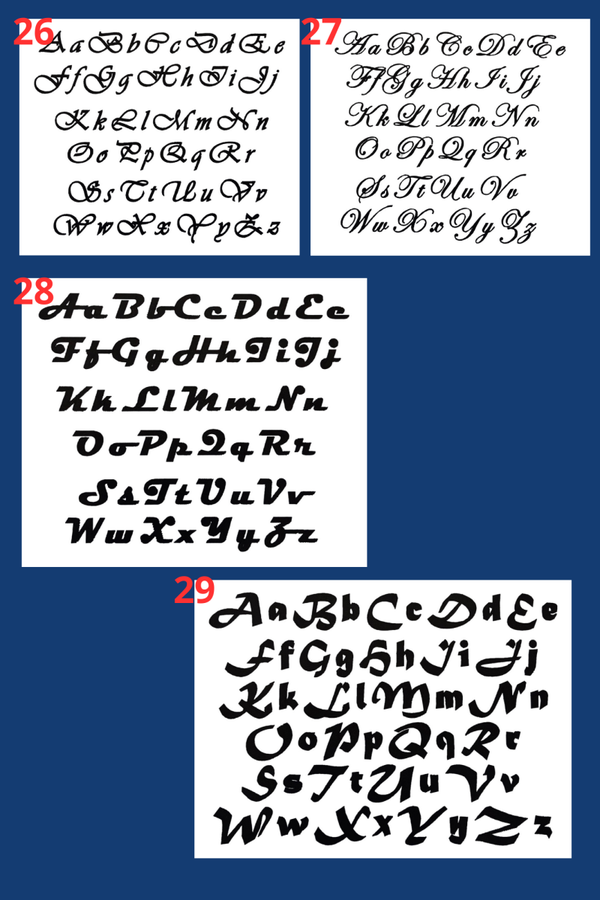 26
Aa Bb Cc Dd Ee
Ff Gg Hh Ii Jj
Kk Ll Mm Nn
Oo Pp Qq Rr
Ss Tt Uu Vv
Ww Xx Yy Zz
27
Aa Bb Cc Dd Ee
Ff Gg Hh Ii Jj
Kk Ll Mm Nn
Oo Pp Qq Rr
Ss Tt Uu Vv
Ww Xx Yy Zz
28
Aa Bb Cc Dd Ee
Ff Gg Hh Ii Jj
Kk Ll Mm Nn
Oo Pp Qq Rr
Ss Tt Uu Vv
Ww Xx Yy Zz
29
Aa Bb Cc Dd Ee
Ff Gg Hh Ii Jj
Kk Ll Mm Nn
Oo Pp Qq Rr
Ss Tt Uu Vv
Ww Xx Yy Zz